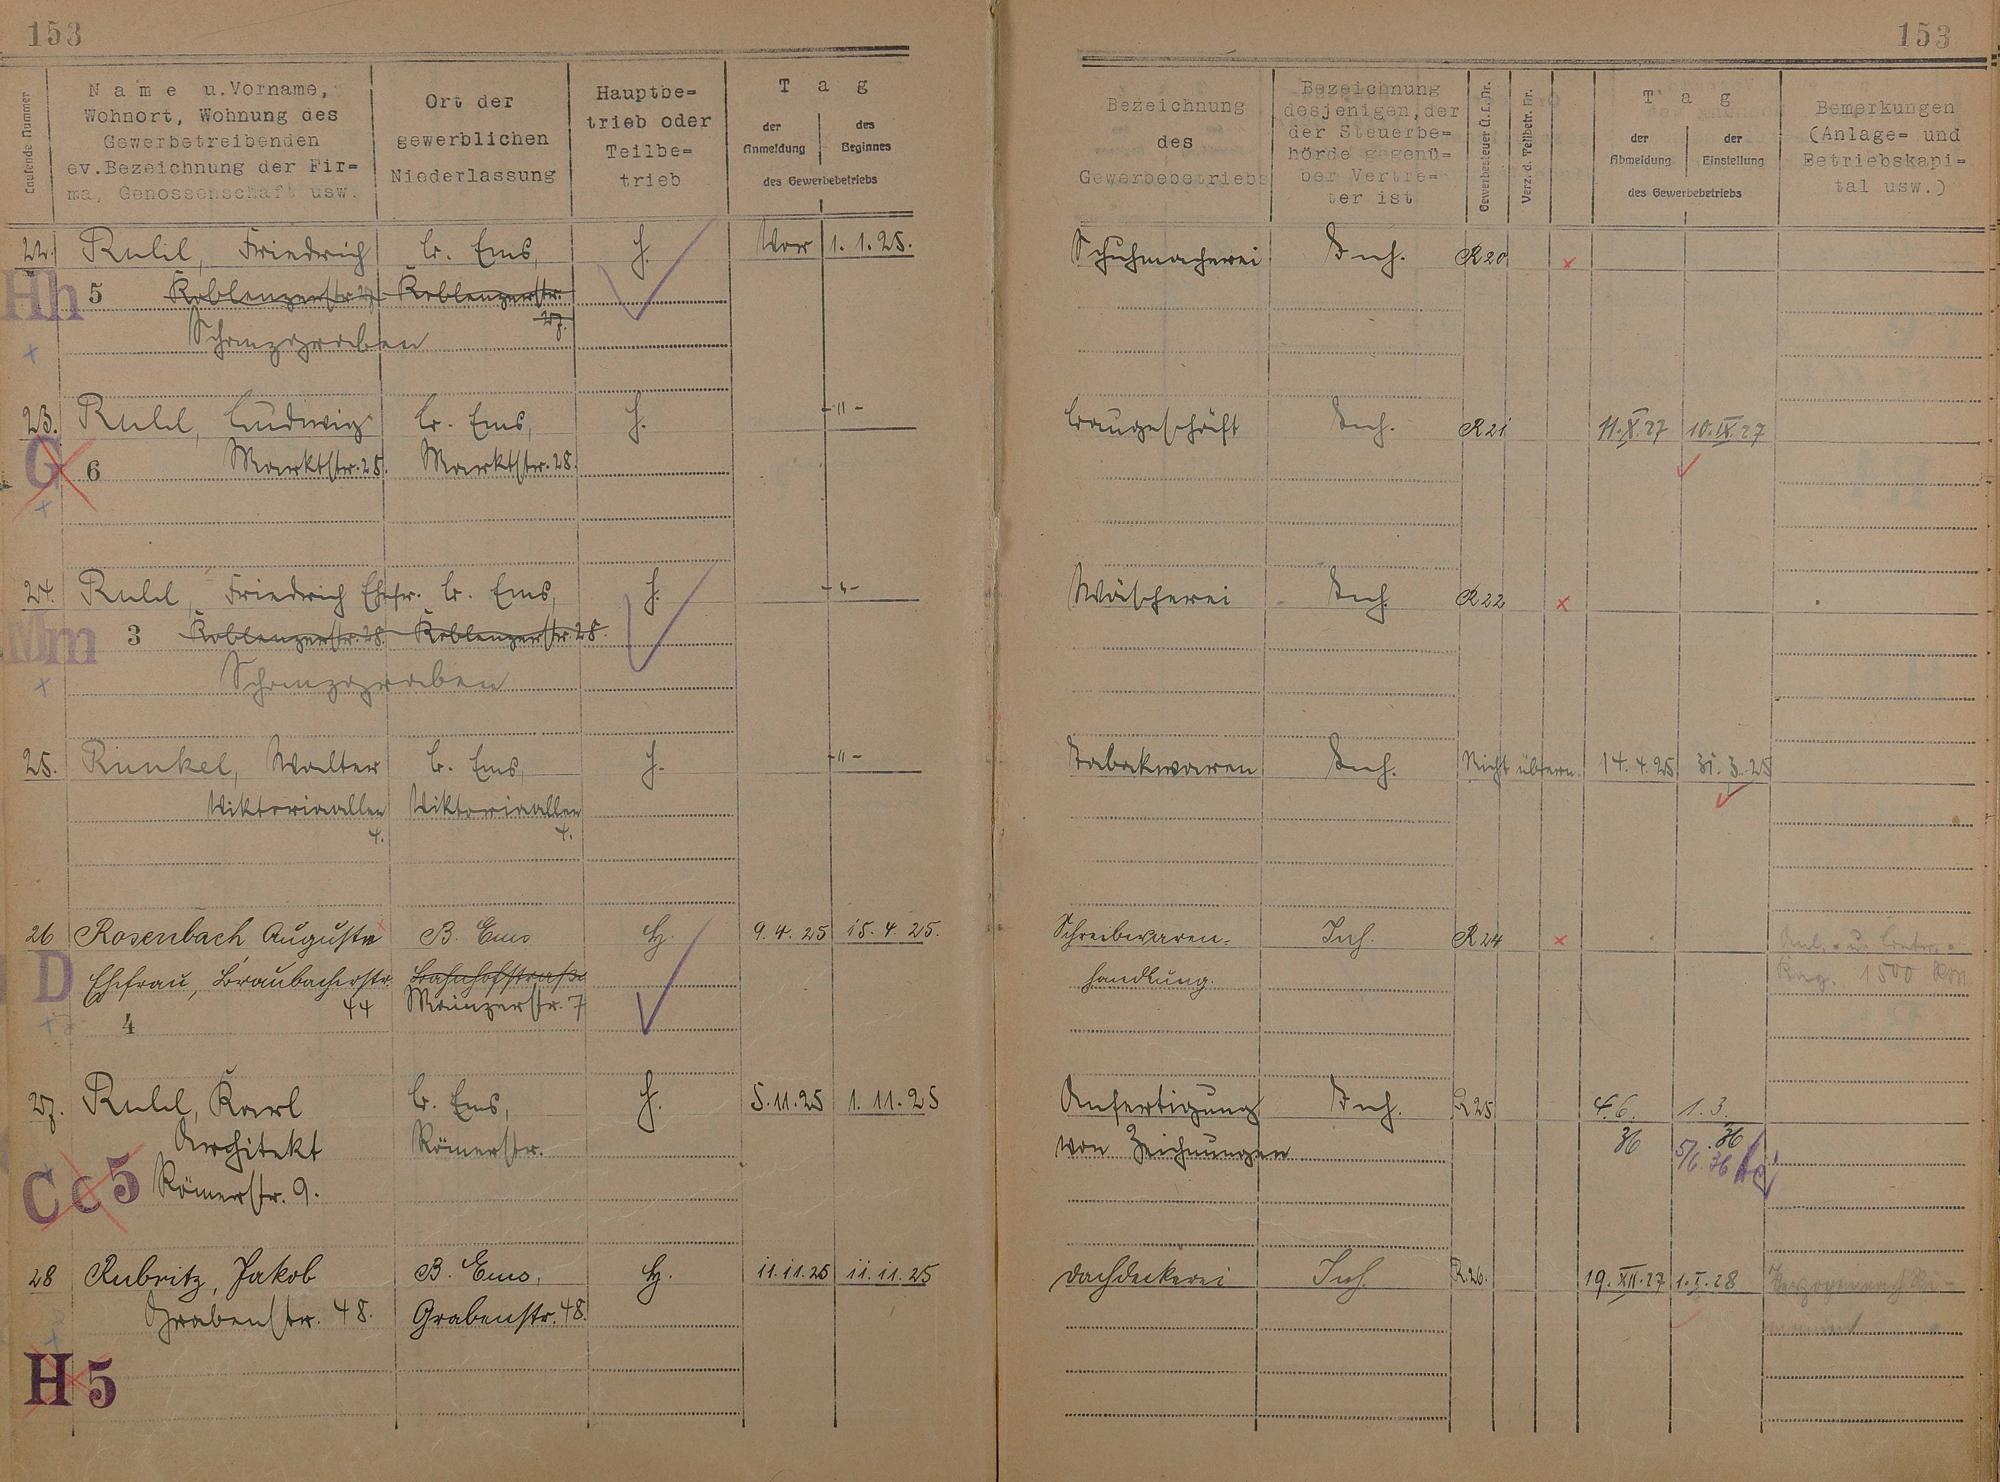 153
153
Laufende Nummer
N a m e u. Vorname,
Wohnort, Wohnung des
Gewerbetreibenden
ev. Bezeichnung der Fir=
ma, Genossenschaft usw.
Ort der
gewerblichen
Niederlassung
Hauptbe=
trieb oder
Teilbe=
trieb
T a g
der
Anmeldung
des
Beginnes
des Gewerbebetriebs
Bezeichnung
des
Gewerbebetriebs
Bezeichnung
desjenigen, der
der Steuerbe=
hörde gegenü=
ber Vertre=
ter ist
Gewerbesteuer Ü.L.Nr.
Verz. d. Teilbetr. Nr.
T a g
der
Abmeldung
der
Einstellung
des Gewerbebetriebs
Bemerkungen
(Anlage= und
Betriebskapi=
tal usw.)
22. Ruhl, Friedrich B. Ems, H. Vor 1.1.25. Schuhmacherei Inh. R20 x
Hh 5 Koblenzerstr. 27 Koblenzerstr.
27.
Schanzgraben
23. Ruhl, Ludwig B. Ems, H. -"- Baugeschäft Inh. R21 11.X.27 10.IX.27
G 6 Marktstr. 28. Marktstr. 28.
24. Ruhl, Friedrich Ehefr. B. Ems, H. -"- Wäscherei Inh. R22 x
Mm 3 Koblenzerstr. 28. Koblenzerstr. 28.
Schanzgraben
25. Runkel, Walter B. Ems, H. -"- Tabakwaren Inh. Nicht übern. 14.4.25 31.3.25
Viktoriaallee Viktoriaallee
4. 4.
26 Rosenbach Auguste B. Ems H. 9.4.25 15.4.25. Schreibwaren- Inh. R24 x
D Ehefrau, Braubacherstr. Bahnhofstraße handlung. 1500
44 Mainzerstr. 7
4
27. Ruhl, Karl B. Ems, H. 5.11.25 1.11.25 Anfertigung Inh. R25 4.6. 1.3.
Architekt Römerstr. von Zeichnungen 36 36
5/6.36
Cc5 Römerstr. 9.
28 Rubritz, Jakob B. Ems, H. 11.11.25 11.11.25 Dachdeckerei Inh. R26. 19.XII.27 1.I.28
Grabenstr. 48. Grabenstr. 48.
H 5